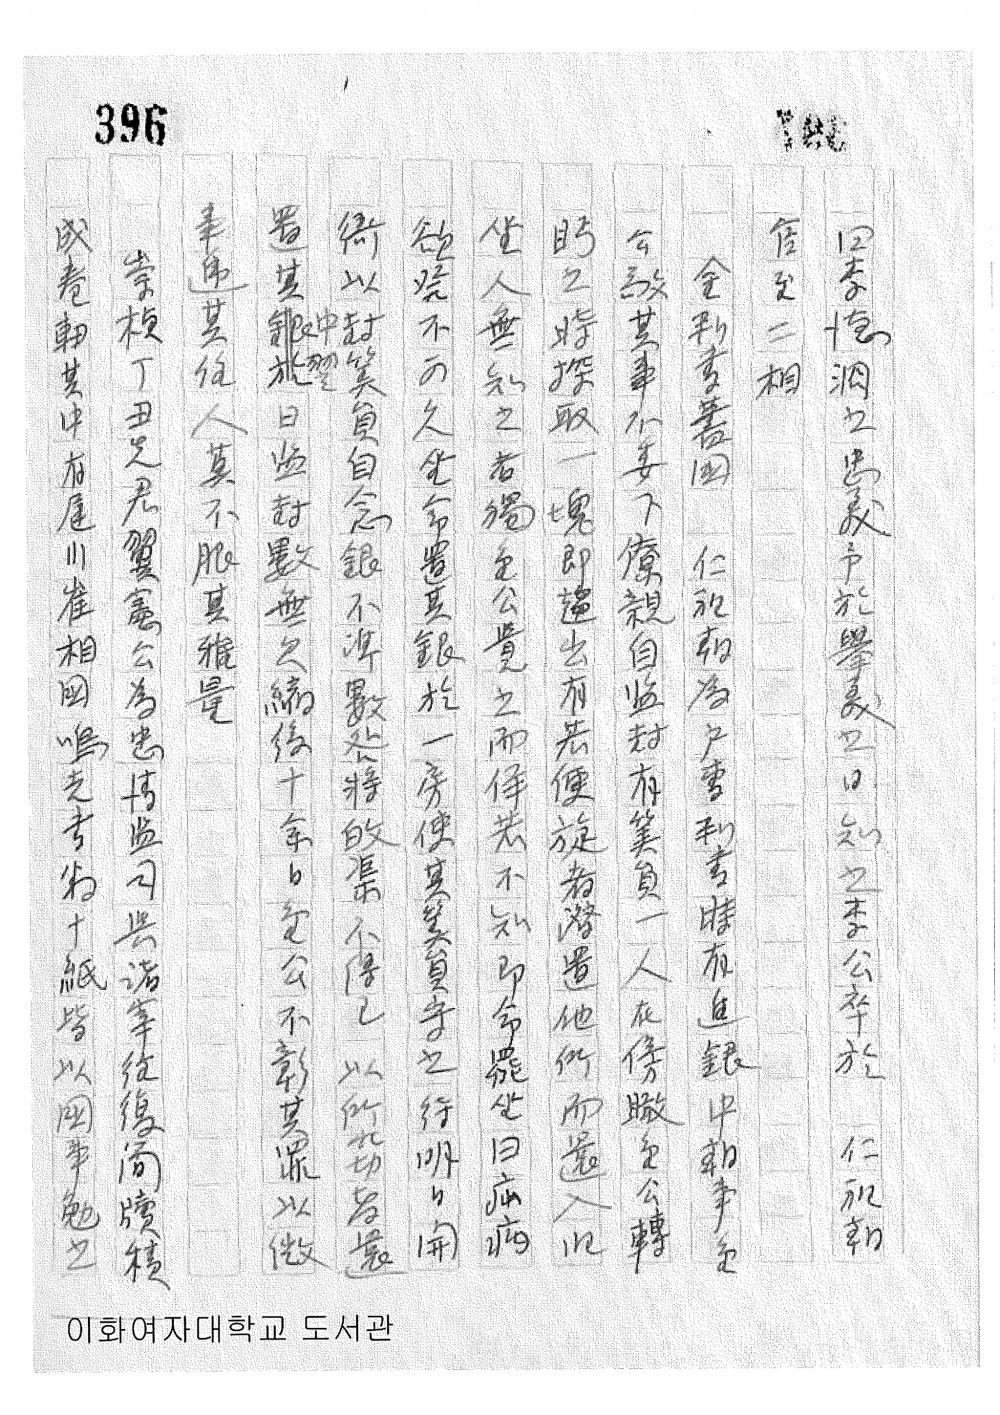 396
曰李德泂之忠義予於擧義之日知之李公卒於 仁祖朝
官至二相
金判書蓍國 仁祖朝爲戶曹判書時有進銀中朝事金
公敬其事不委下僚親自监封有筭員一人在傍瞰金公轉
眄之時探取一塊即趍出有若便旋者潜置他所而還入旧
坐人無知之者獨金公覺之而佯若不知即命罷坐曰疝病
欲発不可久坐命置其銀於一房使其筭員守之待明日開
衙以封筭員自念銀不準數公將的渠不得已以所窃者還
置其銀於中翌日监封數無欠縮後十余日金公不彰其罪以微
事逓其任人莫不服其雅量
崇楨丁丑先君翼憲公為忠淸监司與諸宰往復简牘積
成卷軸其中有尾川崔相國鳴吉書幼十紙皆以國事勉之
이화여자대학교 도서관